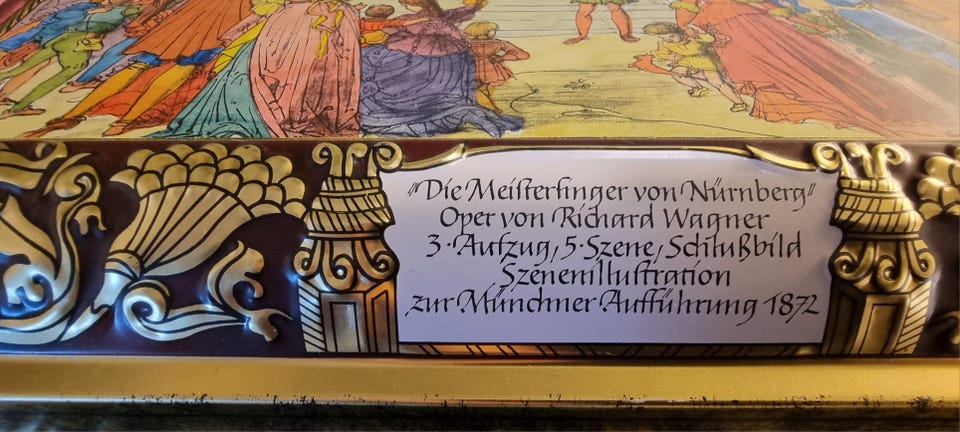 "Die Meiſterſinger von Nürnberg"
Oper von Richard Wagner
3. Aufzug, 5. Szene, Schlußbild
Szenenilluſtration
zur Münchner Aufführung 1872